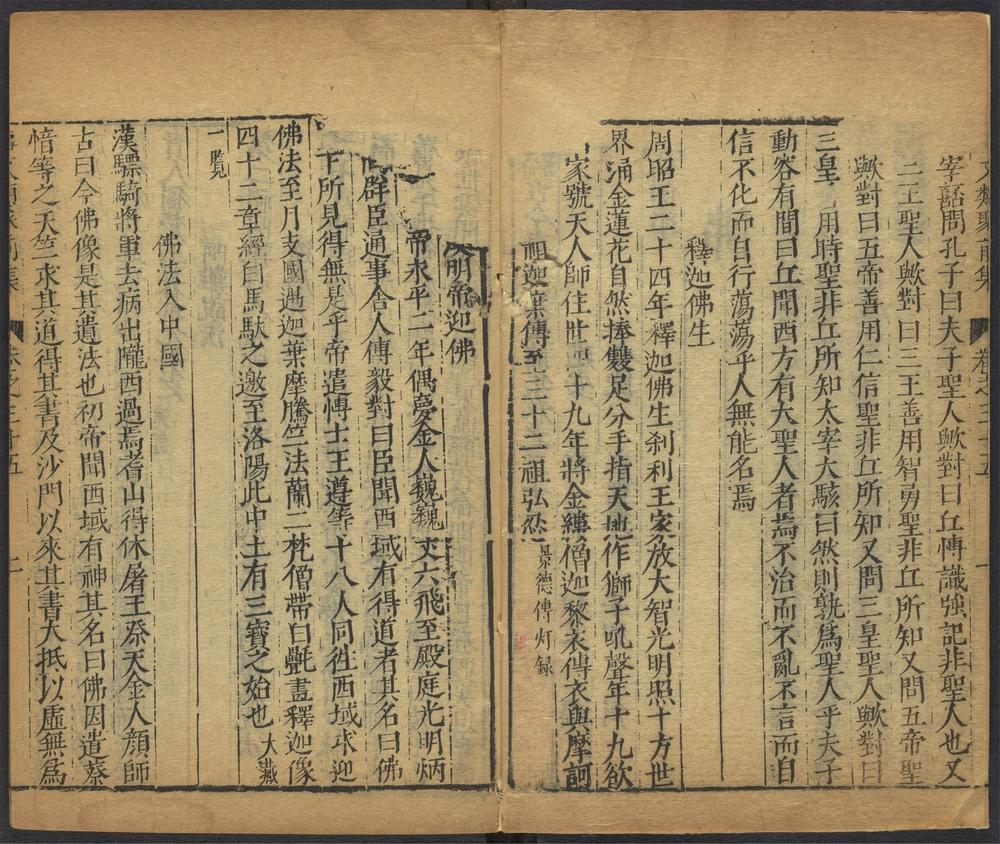 文類聚前集 卷之三十五 一
宰嚭問孔子曰夫子聖人歟對曰丘博識強記非聖人也又
三王聖人歟對曰三王善用智勇聖非丘所知又問五帝聖
歟對曰五帝善用仁信聖非丘所知又問三皇聖人歟對曰
三皇 用時聖非丘所知太宰大駭曰然則孰爲聖人乎夫子
動容有間曰丘聞西方有大聖人者焉不治而不亂不言而自
信不化而自行蕩蕩乎人無能名焉
釋迦佛生
周昭王二十四年釋迦佛生刹利王家放大智光明照十方世
界涌金蓮花自然捧雙足分手指天地作獅子吼聲年十九欲
家號天人師住世四十九年將金縷僧迦黎衣傳衣與摩訶
祖迦葉傳至三十二祖弘忍 景德傳灯録
明帝迎佛
帝永平二年偶夢金人巍巍丈六飛至殿庭光明炳
群臣通事舍人傅毅對曰臣聞西域有得道者其名曰佛
下所見得無是乎帝遣博士王遵等十八人同徃西域求迎
佛法至月支國遇迦葉摩騰竺法蘭二梵僧帶白㲲畫釋迦像
四十二章經白馬馱之邀至洛陽此中土有三寶之始也 大藏
一覽
佛法入中國
漢驃騎將軍去病出隴西過焉耆山得休屠王祭天金人顔師
古曰今佛像是其遺法也初帝聞西域有神其名曰佛因遣蔡
愔等之天竺求其道得其書及沙門以來其書大抵以虛無爲
前集 卷之三十五 二